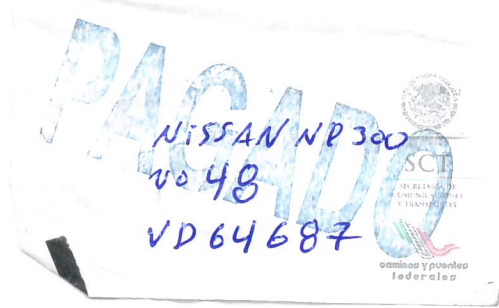 PAGADO
NISSAN NP300
no 48
VD64687
SCT
SECRETARÍA DE
COMUNICACIONES
Y TRANSPORTES
caminos y puentes
federales